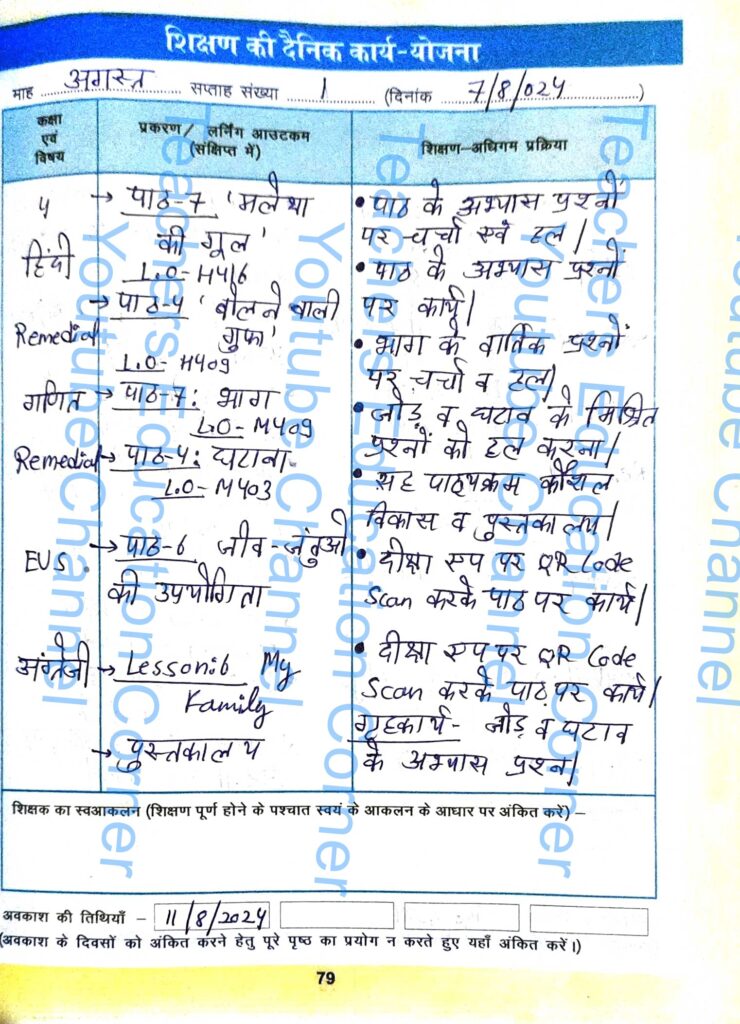 शिक्षण की दैनिक कार्य-योजना
माह अगस्त सप्ताह संख्या 1 (दिनांक 7/8/024)
कक्षा एवं विषय
प्रकरण / लर्निंग आउटकम (संक्षिप्त में)
शिक्षण-अधिगम प्रक्रिया
5
हिंदी
→ पाठ-7 'मलेथा
की गूल'
L.O- H416
Remedial
→ पाठ-4 'बोलने वाली
गुफा'
L.O- H409
गणित
→ पाठ-7: भाग
L.O- M409
Remedial
→ पाठ-4: घटाना
L.O- M403
EVS
→ पाठ-6 जीव-जंतुओ
की उपयोगिता
अंग्रेजी
→ Lesson:6 My
Family
→ पुस्तकालय
• पाठ के अभ्यास प्रश्नों
पर चर्चा एवं हल।
• पाठ के अभ्यास प्रश्नों
पर कार्य।
• भाग के वार्तिक प्रश्नों
पर चर्चा व हल।
• जोड़ व घटाव के मिश्रित
प्रश्नों को हल करना।
• सह पाठ्यक्रम कौशल
विकास व पुस्तकालय।
• दीक्षा एप पर QR Code
Scan करके पाठ पर कार्य।
• दीक्षा एप पर QR Code
Scan करके पाठ पर कार्य।
गृहकार्य- जोड़ व घटाव
के अभ्यास प्रश्न।
शिक्षक का स्वआकलन (शिक्षण पूर्ण होने के पश्चात स्वयं के आकलन के आधार पर अंकित करें) –
अवकाश की तिथियाँ – 11/8/2024
(अवकाश के दिवसों को अंकित करने हेतु पूरे पृष्ठ का प्रयोग न करते हुए यहाँ अंकित करें।)
79
Teachers Education Corner
Youtube Channel
Teachers Education Corner
Youtube Channel
Teacher's Education Corner
Youtube Channel